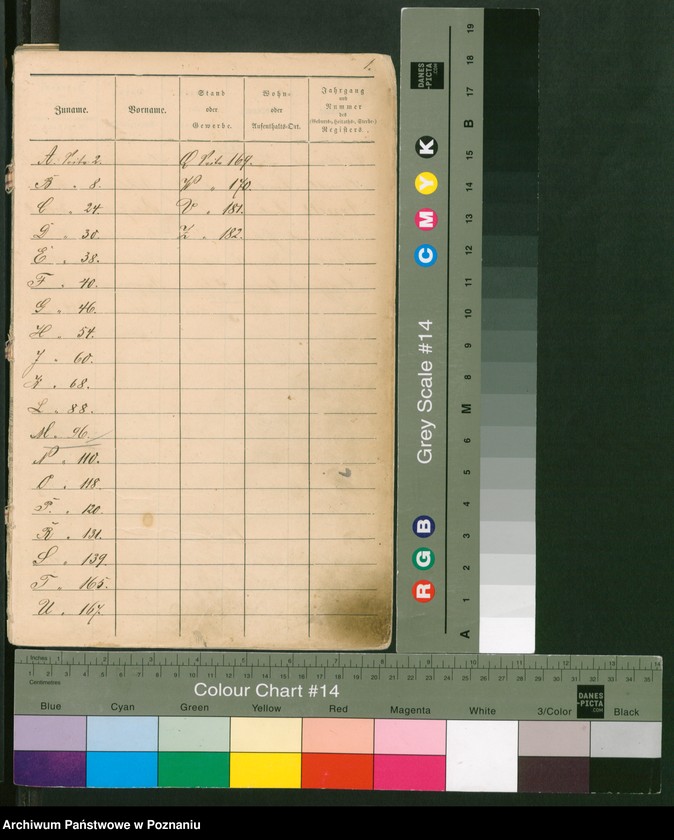 1.
Zuname.
Vorname.
Stand
oder
Gewerbe.
Wohn-
oder
Aufenthalts-Ort.
Jahrgang
und
Nummer
des
(Geburts-, Heiraths-, Sterbe-)
Registers.
A. Seite 2.
B " 8.
C " 24.
D " 30.
E " 38.
F " 40.
G " 46.
H " 54.
J " 60.
K " 68.
L " 88.
M " 96.
N " 110.
O " 118.
P. " 120.
R " 131.
S " 139.
T " 165.
U " 167.
Q Seite 169.
W " 170.
V " 181.
Z " 182.
DANES
-PICTA
.COM
Grey Scale #14
R G B
C M Y K
A 1 2 3 4 5 6 M 8 9 10 11 12 13 14 15 B 17 18 19
Inches 1 2 3 4 5 6 7 8 9 10 11 12 13 14
1 2 3 4 5 6 7 8 9 10 11 12 13 14 15 16 17 18 19 20 21 22 23 24 25 26 27 28 29 30 31 32 33 34 35
Centimetres
Colour Chart #14
DANES
-PICTA
.COM
Blue Cyan Green Yellow Red Magenta White 3/Color Black
Archiwum Państwowe w Poznaniu